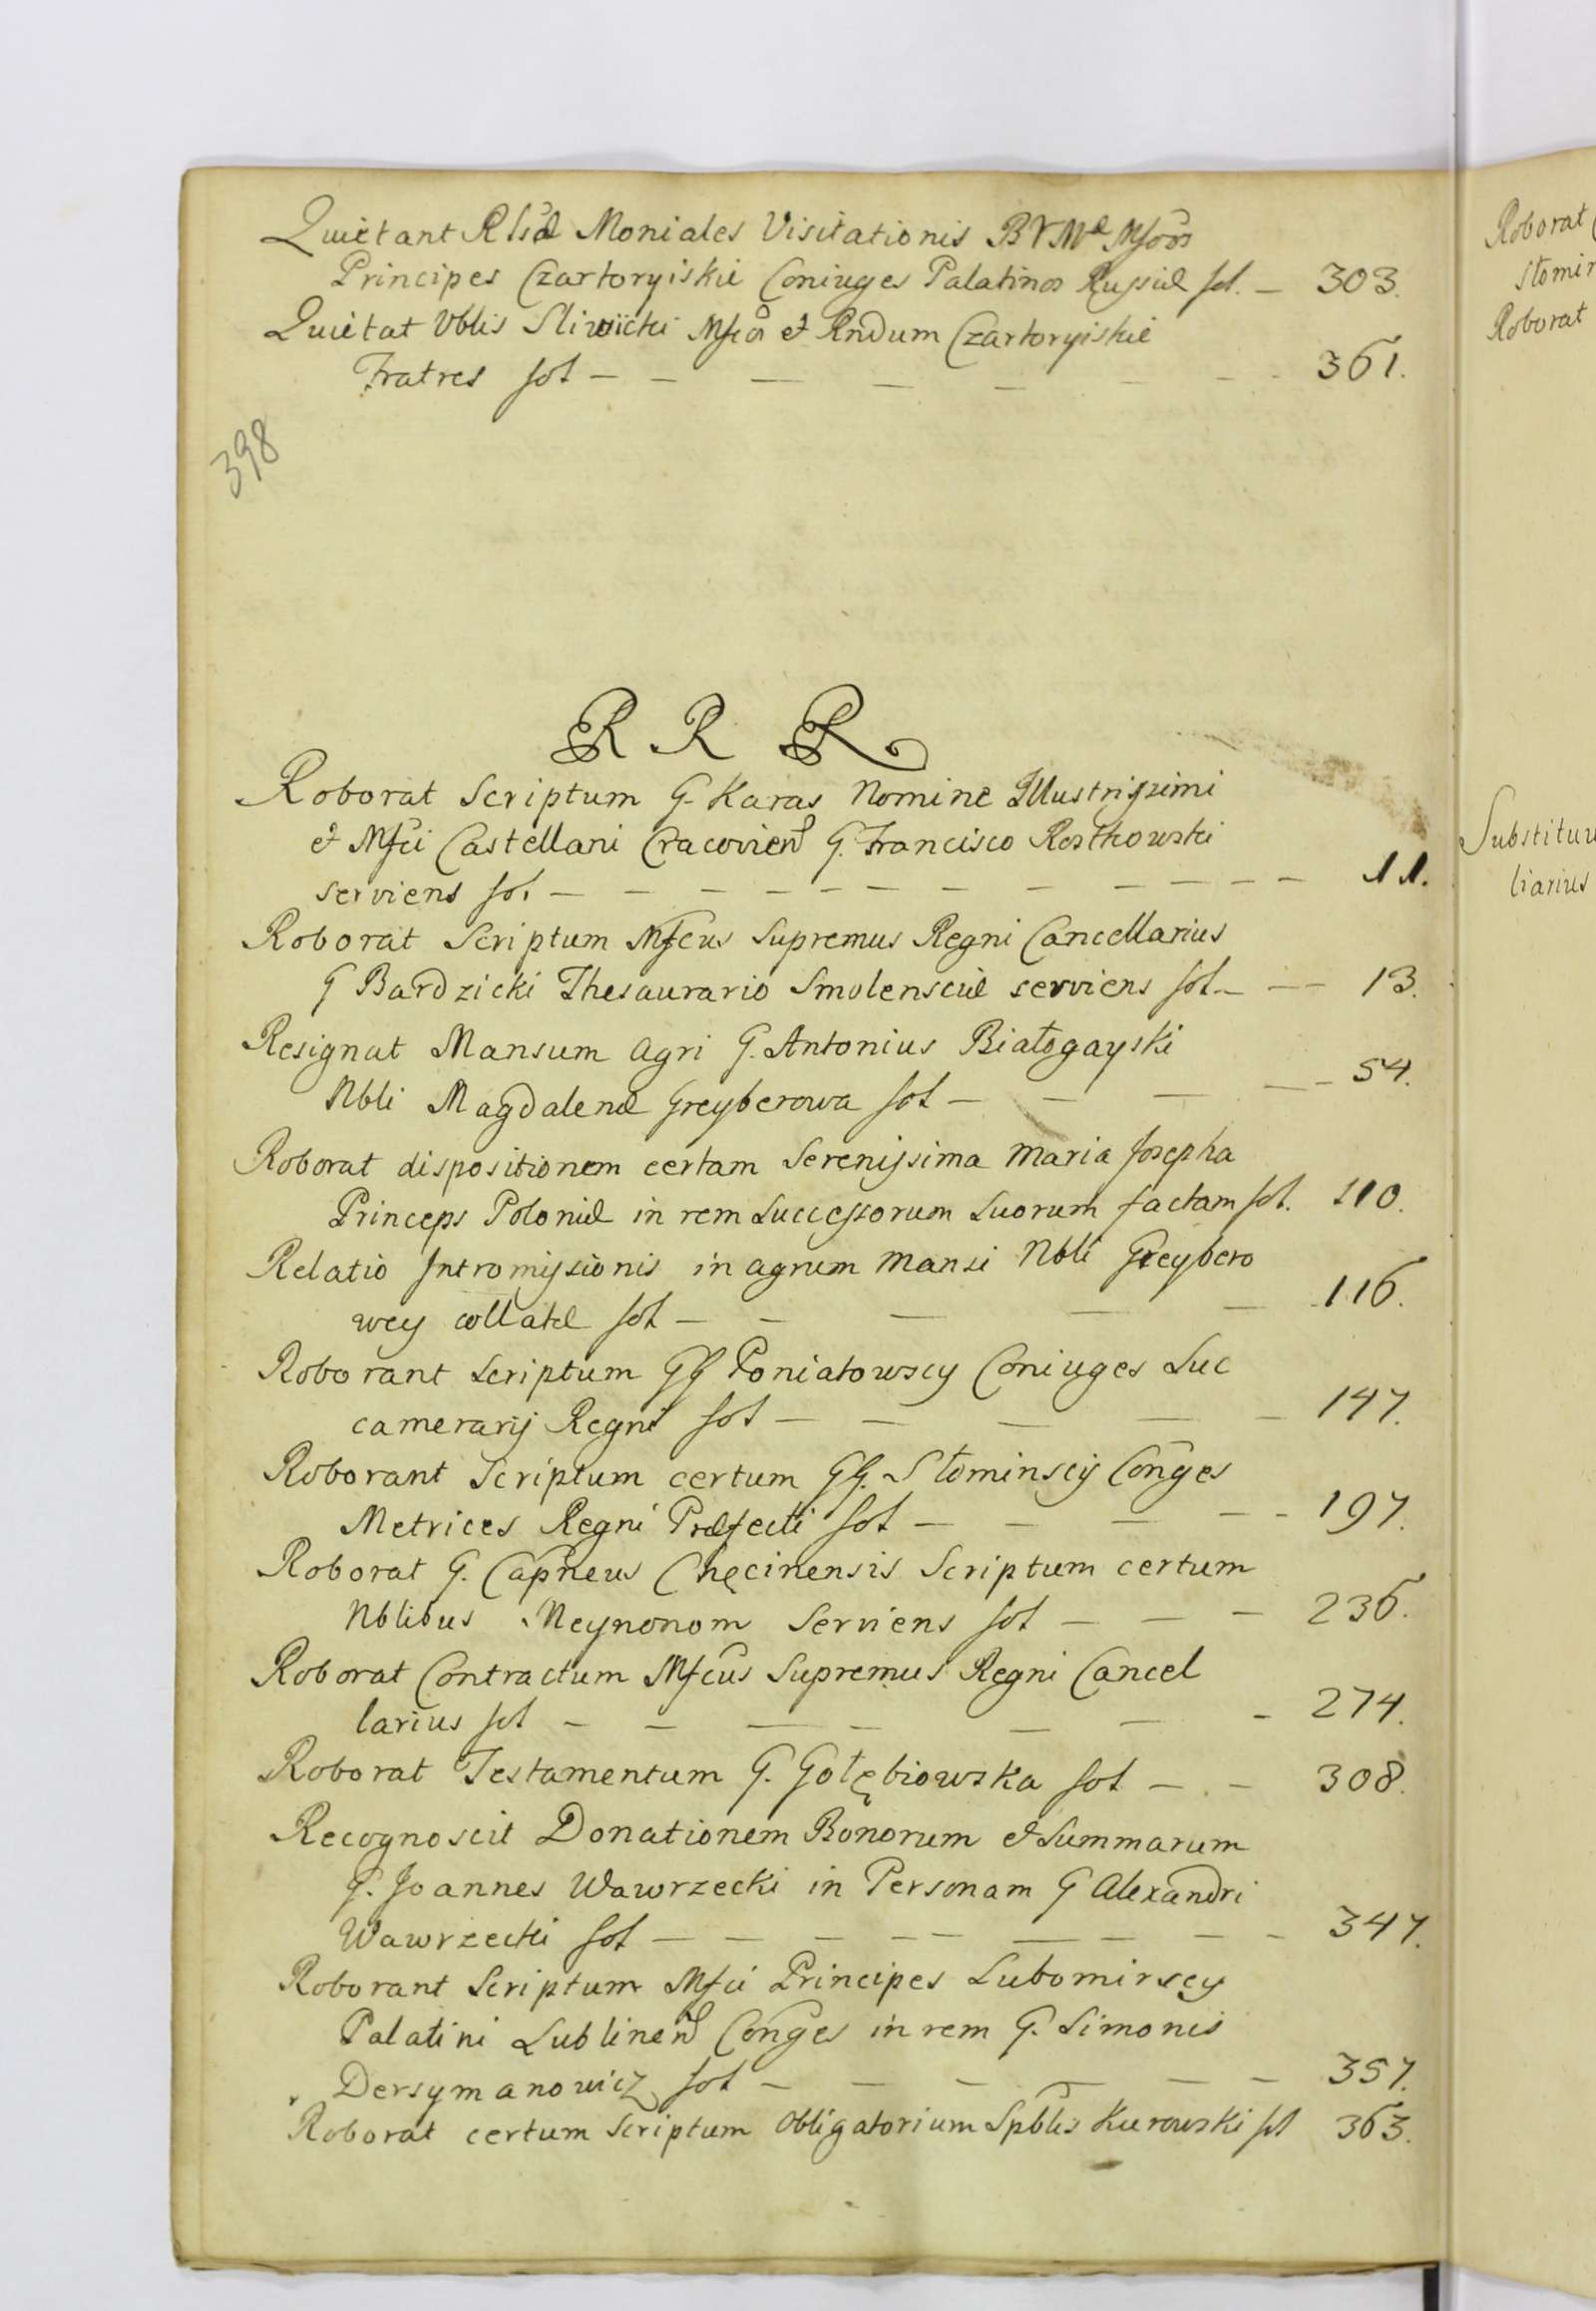 Quietant Rlsæ Moniales Visitationis BVMæ Mfcos
Principes Czartoryiskie Coniuges Palatinos Russiæ fol. — 303.
Quietat Nblis Sliwicki Mfcos et Rndum Czartoryiskie
Fratres fol — — — — — — — 361.
398
R R R
Roborat Scriptum G. Karas Nomine Illustrissimi
et Mfci Castellani Cracovien G. Francisco Rostkowski
serviens fol — — — — — — — — — — — 11.
Roborat Scriptum Mfcus Supremus Regni Cancellarius
G Bardzicki Thesaurario Smolensciæ serviens fol — — — 13.
Resignat Mansum Agri G. Antonius Białogayski
Nbli Magdalenæ Greyberowa fol — — — — — 54.
Roborat dispositionem certam Serenissima Maria Josepha
Princeps Poloniæ in rem Successorum Suorum factam fol. 110.
Relatio Intromissionis in agrum Mansi Nbli Greybero
wey collatæ fol — — — — — 116.
Roborant Scriptum GG Poniatowscy Coniuges Suc
camerarij Regni fol — — — — — 147.
Roborant Scriptum certum GG. Słominscy Conges
Metrices Regni Præfecti fol — — — — — 197.
Roborat G. Capneus Chęcinensis Scriptum certum
Nblibus Meynonom Serviens fol — — — 236.
Roborat Contractum Mfcus Supremus Regni Cancel
larius fol — — — — — — — 274.
Roborat Testamentum G. Gołębiowska fol — — 308.
Recognoscit Donationem Bonorum et Summarum
G. Joannes Wawrzecki in Personam G Alexandri
Wawrzecki fol — — — — — — — — — 347.
Roborant Scriptum Mfci Principes Lubomirscy
Palatini Lublinen Conges in rem G. Simonis
Dersymanowicz fol — — — — — — 357.
Roborat certum Scriptum Obligatorium Spblis Kurowski fol 363.
Roborat
Słomin
Roborat
Substituu
liarius